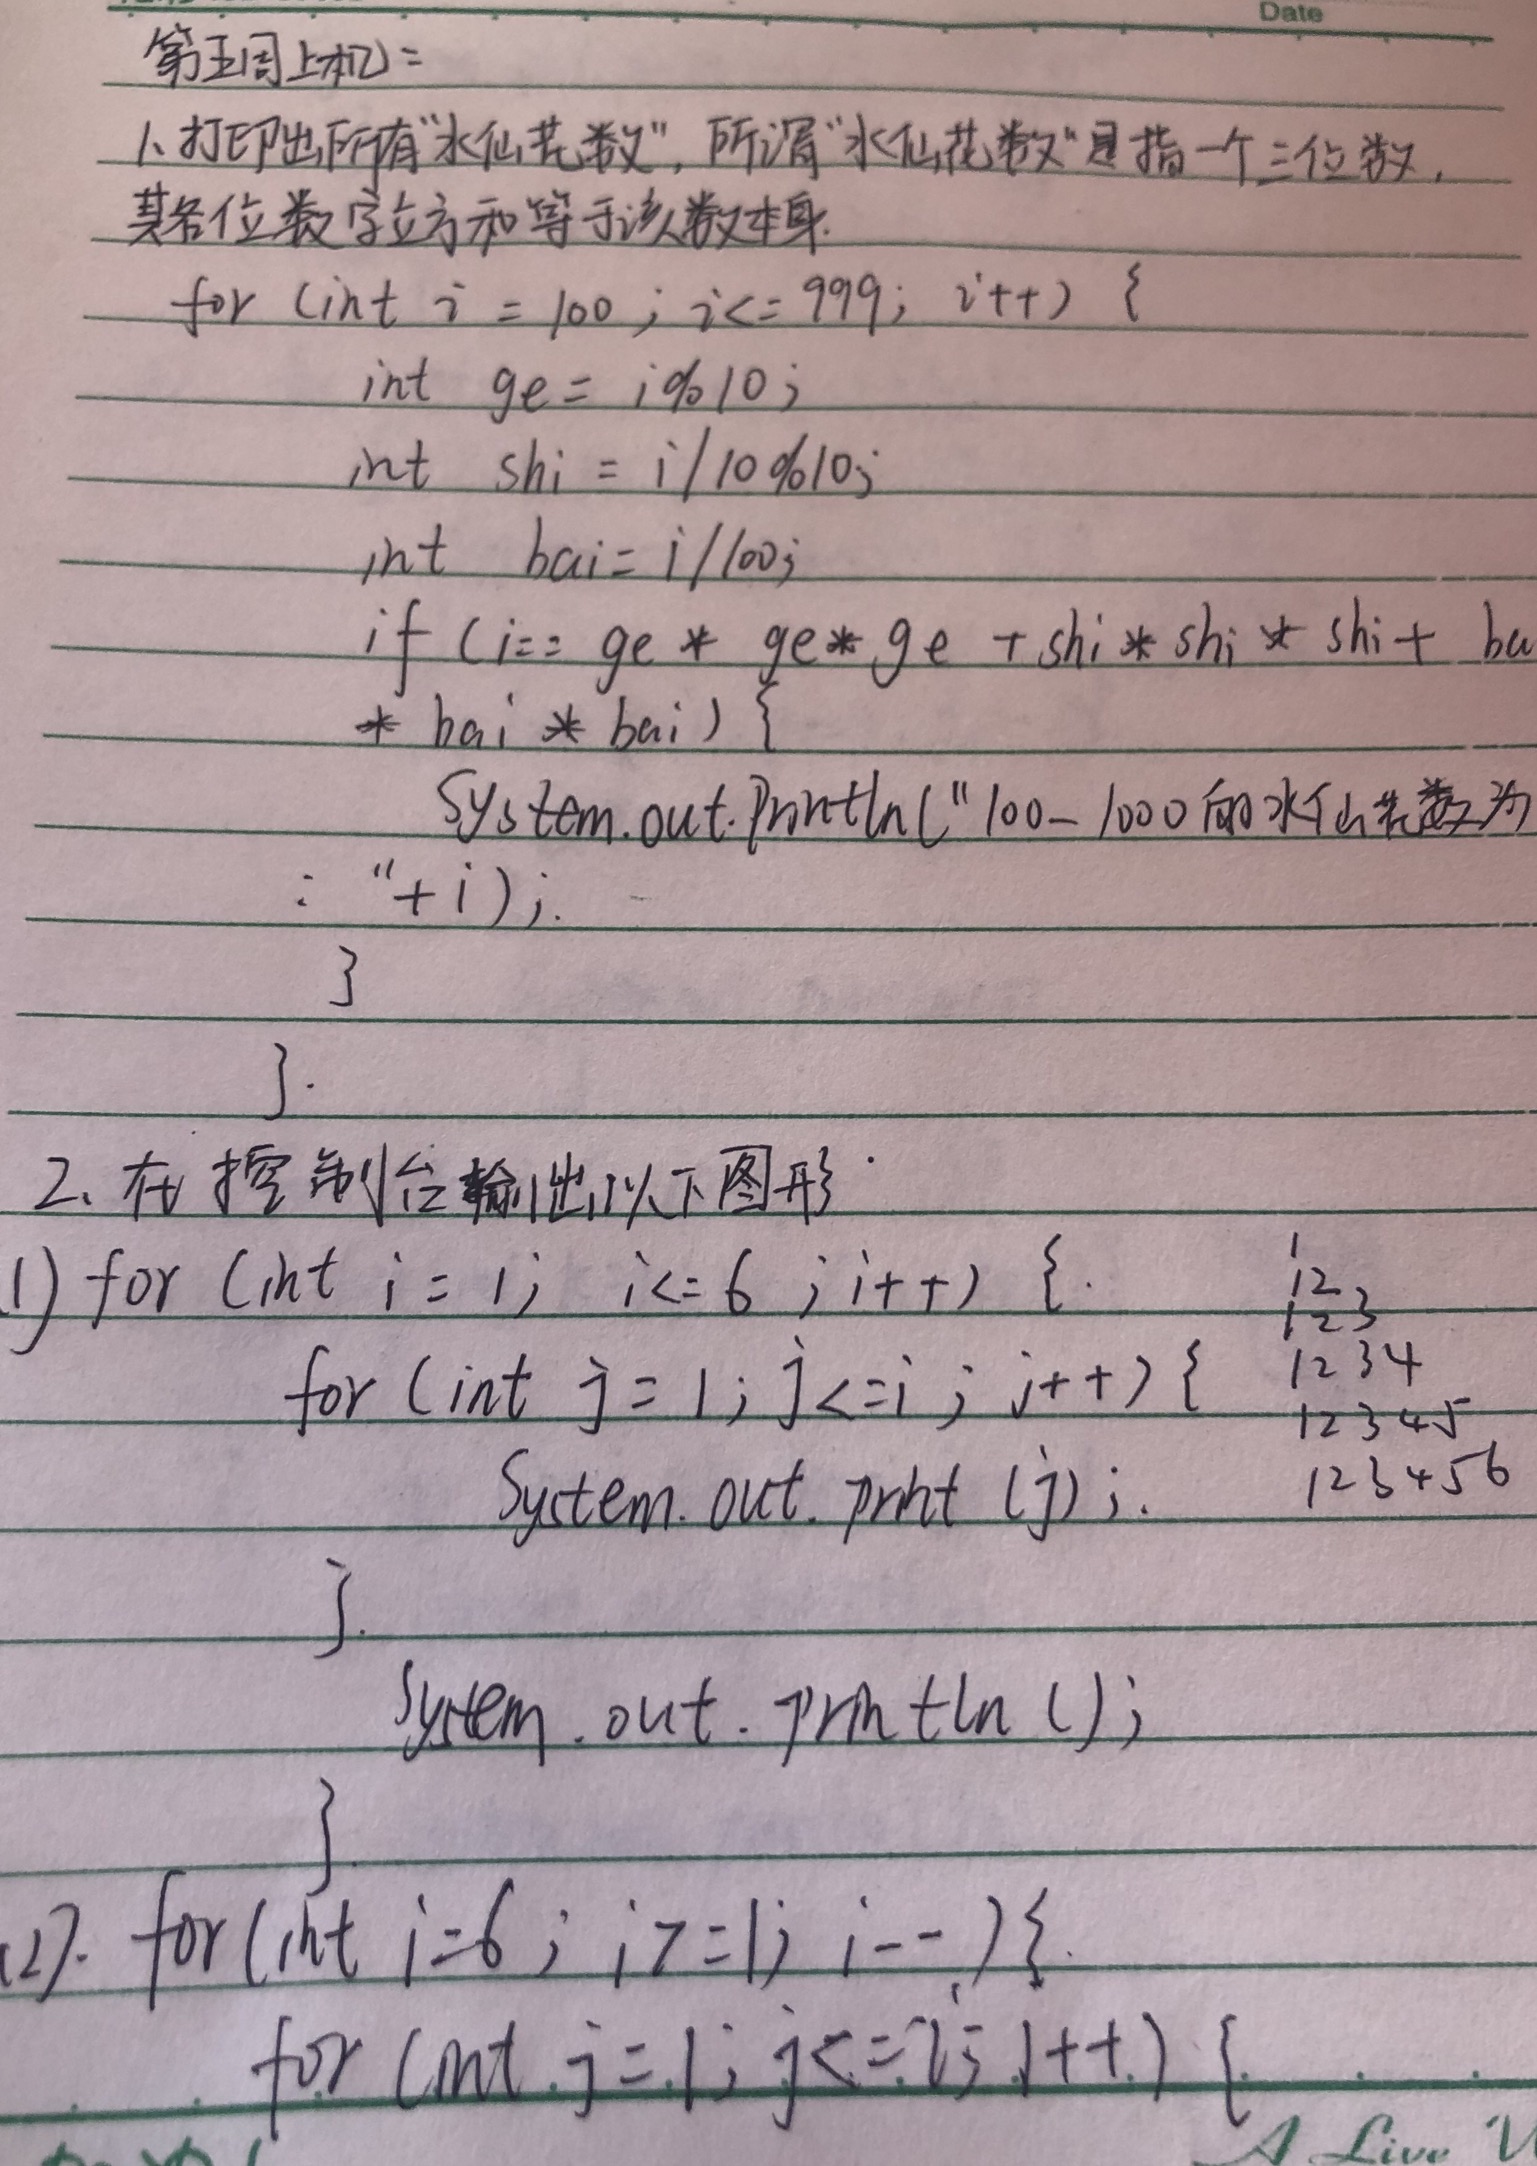 Date
第五周上机:
1、打印出所有"水仙花数", 所谓"水仙花数"是指一个三位数,
其各位数字立方和等于该数本身.
for (int i = 100 ; i<= 999; i++) {
int ge = i%10;
int shi = i/10%10;
int bai = i/100;
if (i== ge * ge * ge + shi * shi * shi +
* bai * bai) {
System.out.println("100-1000的水仙花数为
: "+i);.
}
}.
2、在控制台输出以下图形.
1) for (int i = 1; i<= 6 ; i++) {.
1
12
123
for (int j = 1; j<=i ; j++) {
1234
12345
System.out.print (j);.
123456
}.
System.out.println ();
}
(2). for(int i=6; i>=1; i--){.
for (int j=1; j<=i; j++) {
A Live